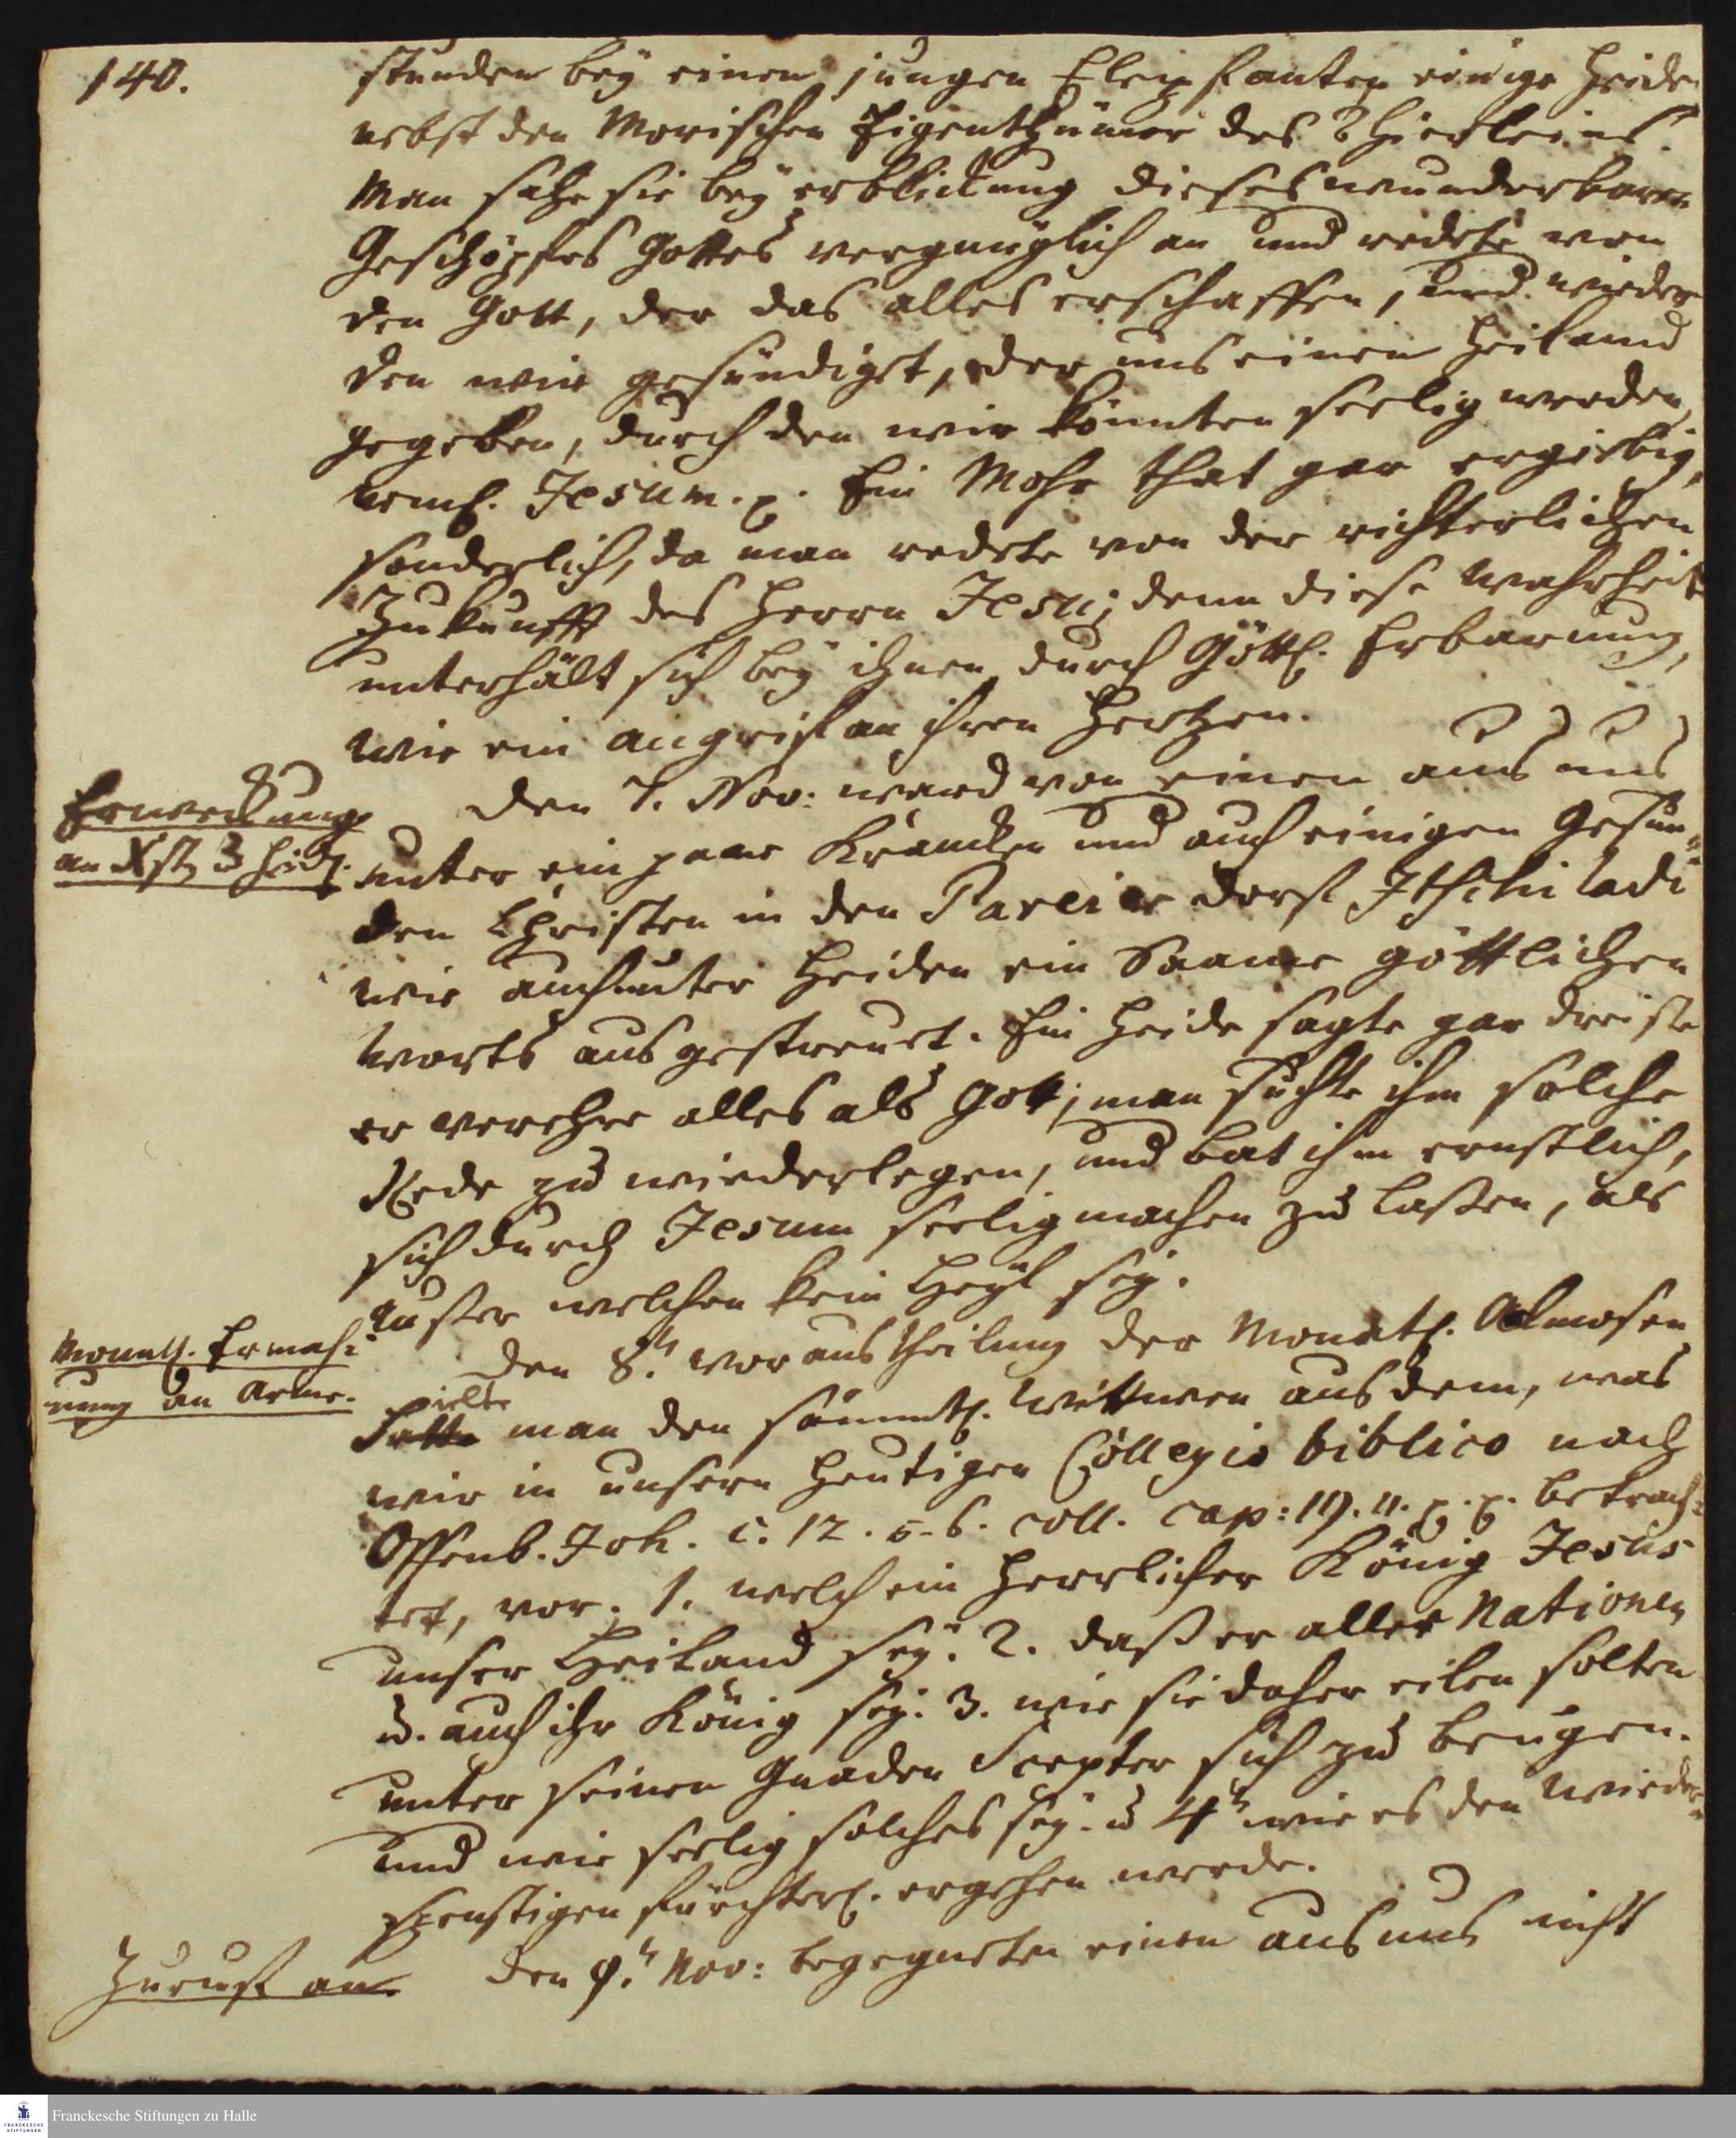 140.
stunden bey einen jungen Elephanten einige Heiden
nebst den Morischen Eigenthümer des Thierleins.
Man sahe sie bey erblickung dieses wunderbaren
Geschöpfes Gottes vergnüglich an und redete von
den Gott, der das alles erschaffen, und wieder
den wir gesündiget, der uns einen Heiland
gegeben, durch den wir könnten seelig werden,
neml. Jesum. p. Ein Mohr that gar ergiebig,
sonderlich, da man redete von der richterlichen
Zukunfft des Herrn Jesu; denn diese Wahrheit
unterhält sich bey ihnen durch Göttl. Erbarmung,
wie ein angrif an ihren Hertzen.
Erweckung
an Xst. u Heid.
Den 7. Nov: ward von einen aus uns
unter ein paar Krancken und auch einigen Gesun-
den Christen in den Pareier dorf Itschiladi
wie auch unter Heiden ein Saame göttlichen
Worts ausgestreuet. Ein Heide sagte gar dreiste
er verehre alles als Gott; man suchte ihm solche
Rede zu wiederlegen, und bat ihn ernstlich,
sich durch Jesum seelig machen zu lassen, als
ausser welchen kein Heyl sey.
Monatl. Ermah-
nung an Arme.
Den 8.t vor austheilung der Monatl. Almosen
hielte
man den sämmtl. Wittwen aus dem, was
wir in unsern heutigen Collegio biblico nach
Offenb. Joh. c. 12. 5-6. coll. cap: 19. 11. p. p. betrach-
tet, vor. 1. welch ein herrlicher König Jesus
unser Heiland sey. 2. daß er aller Nationen
u. auch ihr König sey. 3. wie sie daher eilen solten
unter seinen Gnaden Scepter sich zu beugen.
und wie seelig solches sey. u 4t wie es den Wieder-
spenstigen fürchterl. ergehen werde.
Zuruf an
Den 9.t Nov: begegneten einen aus uns nicht
Franckesche Stiftungen zu Halle